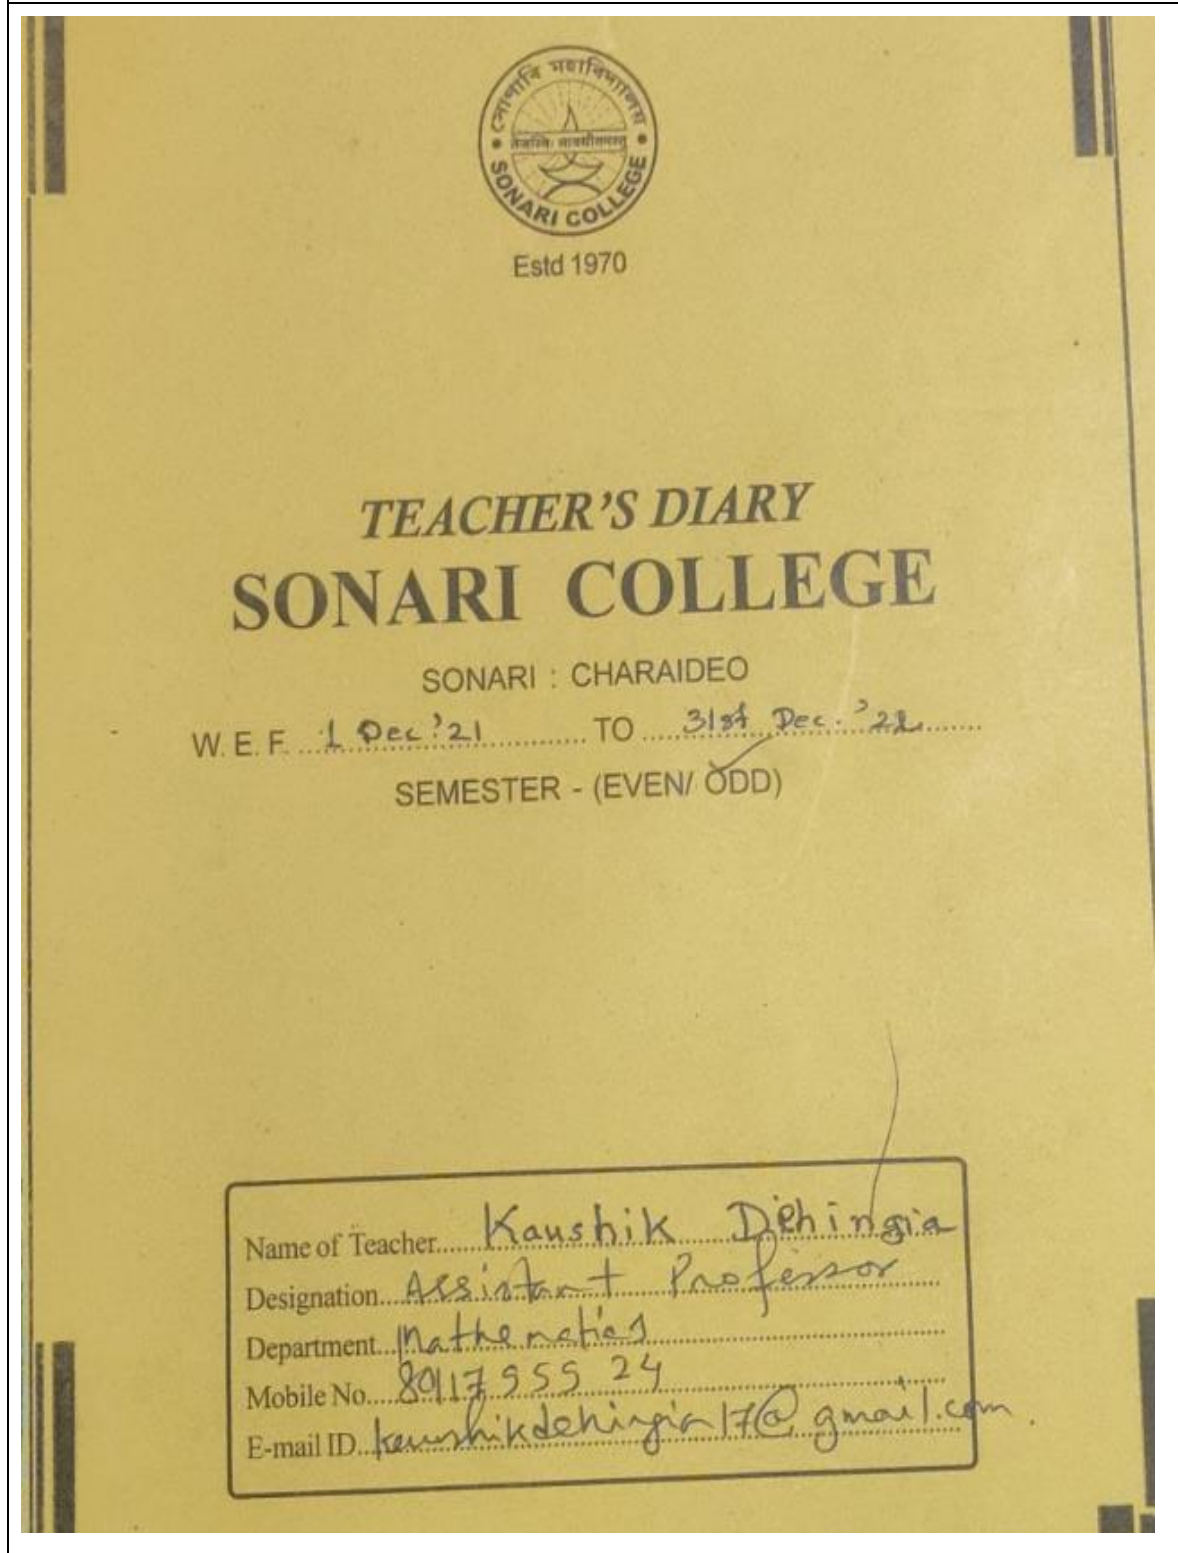 সোণাৰি মহাবিদ্যালয়
SONARI COLLEGE
Estd 1970
TEACHER'S DIARY
SONARI COLLEGE
SONARI : CHARAIDEO
W. E. F. 1 Dec '21 TO 31st Dec. '22
SEMESTER - (EVEN/ ODD)
Name of Teacher Kaushik Dehingia
Designation Assistant Professor
Department Mathematics
Mobile No. 8011795524
E-mail ID kaushikdehingia17@gmail.com.